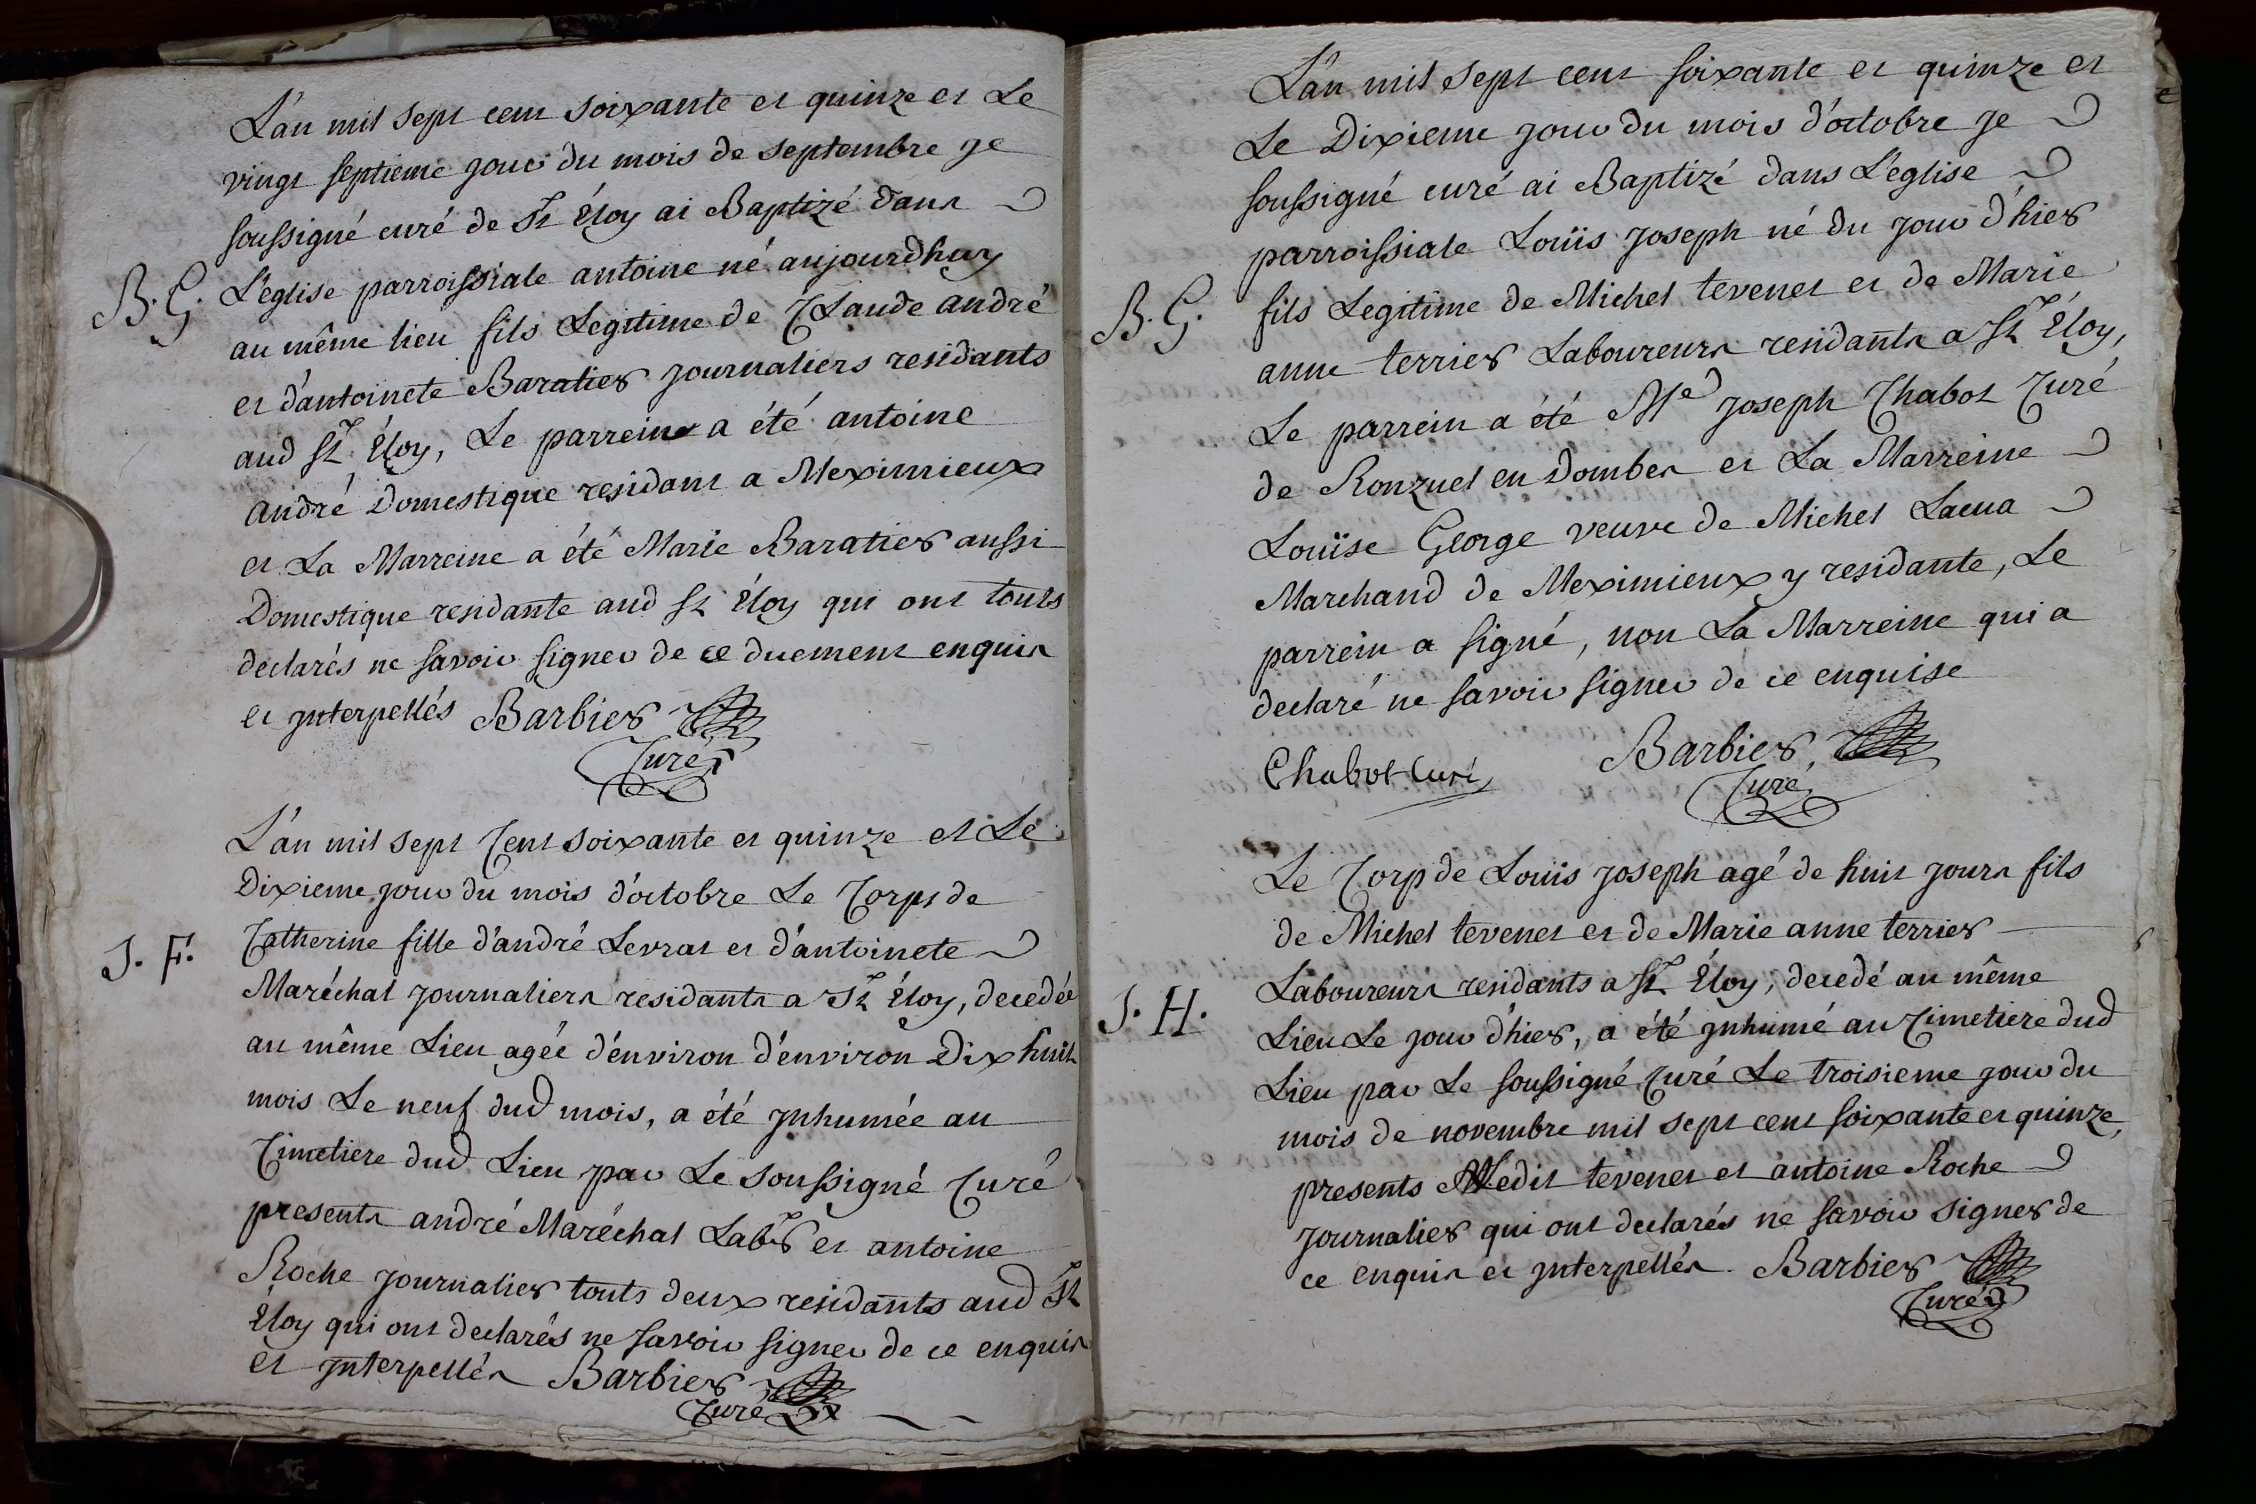 L'an mil sept cent soixante et quinze et Le
vingt septieme jour du mois de septembre je
soussigné curé de St Éloy ai Baptizé dans
B. G. L'eglise parroissiale antoine né aujourdhuy
au même lieu fils Legitime de Claude andré
et d'antoinete Baratier journaliers residants
aud St Éloy, Le parrein a été antoine
andré Domestique residant a Meximieux
et La Marreine a été Marie Baratier aussi
Domestique residante aud St Éloy qui ont touts
declarés ne savoir signer de ce duement enquis
et jnterpellés Barbier
Curé
L'an mil sept Cent soixante et quinze et Le
Dixieme jour du mois d'octobre Le Corps de
J. F. Catherine fille d'andré Levrat et d'antoinete
Maréchal journaliers residants a St Éloy, decedée
au même Lieu agée d'environ d'environ Dix huit
mois Le neuf dud mois, a été jnhumée au
Cimetiere dud Lieu par Le soussigné Curé
presents andré Maréchal Labr et antoine
Roche journalier touts deux residants aud St
Éloy qui ont declarés ne savoir signer de ce enquis
et jnterpellés Barbier
Curé
L'an mil sept cent soixante et quinze et
Le Dixieme jour du mois d'octobre je
soussigné curé ai Baptizé dans L'église
parroissiale Louïs joseph né du jour d'hier
B. G. fils Legitime de Michel tevenet et de Marie
anne terrier Laboureurs residants a St Éloy,
Le parrein a été Me joseph Chabot Curé
de Ronzuel en Dombes et La Marreine
Louïse George veuve de Michel Lacua
Marchand de Meximieux y residante, Le
parrein a signé, non La Marreine qui a
declaré ne savoir signer de ce enquise
Chabot Curé Barbier
Curé
Le Corp de Louïs joseph agé de huit jours fils
de Michel tevenet et de Marie anne terrier
Laboureurs residants a St Éloy, decedé au même
J. H. Lieu Le jour d'hier, a été jnhumé au Cimetiere dud
Lieu par Le soussigné Curé Le troisieme jour du
mois de novembre mil sept cent soixante et quinze,
presents tevenet et antoine Roche
journalier qui ont declarés ne savoir signer de
ce enquis et jnterpellés Barbier
Curé